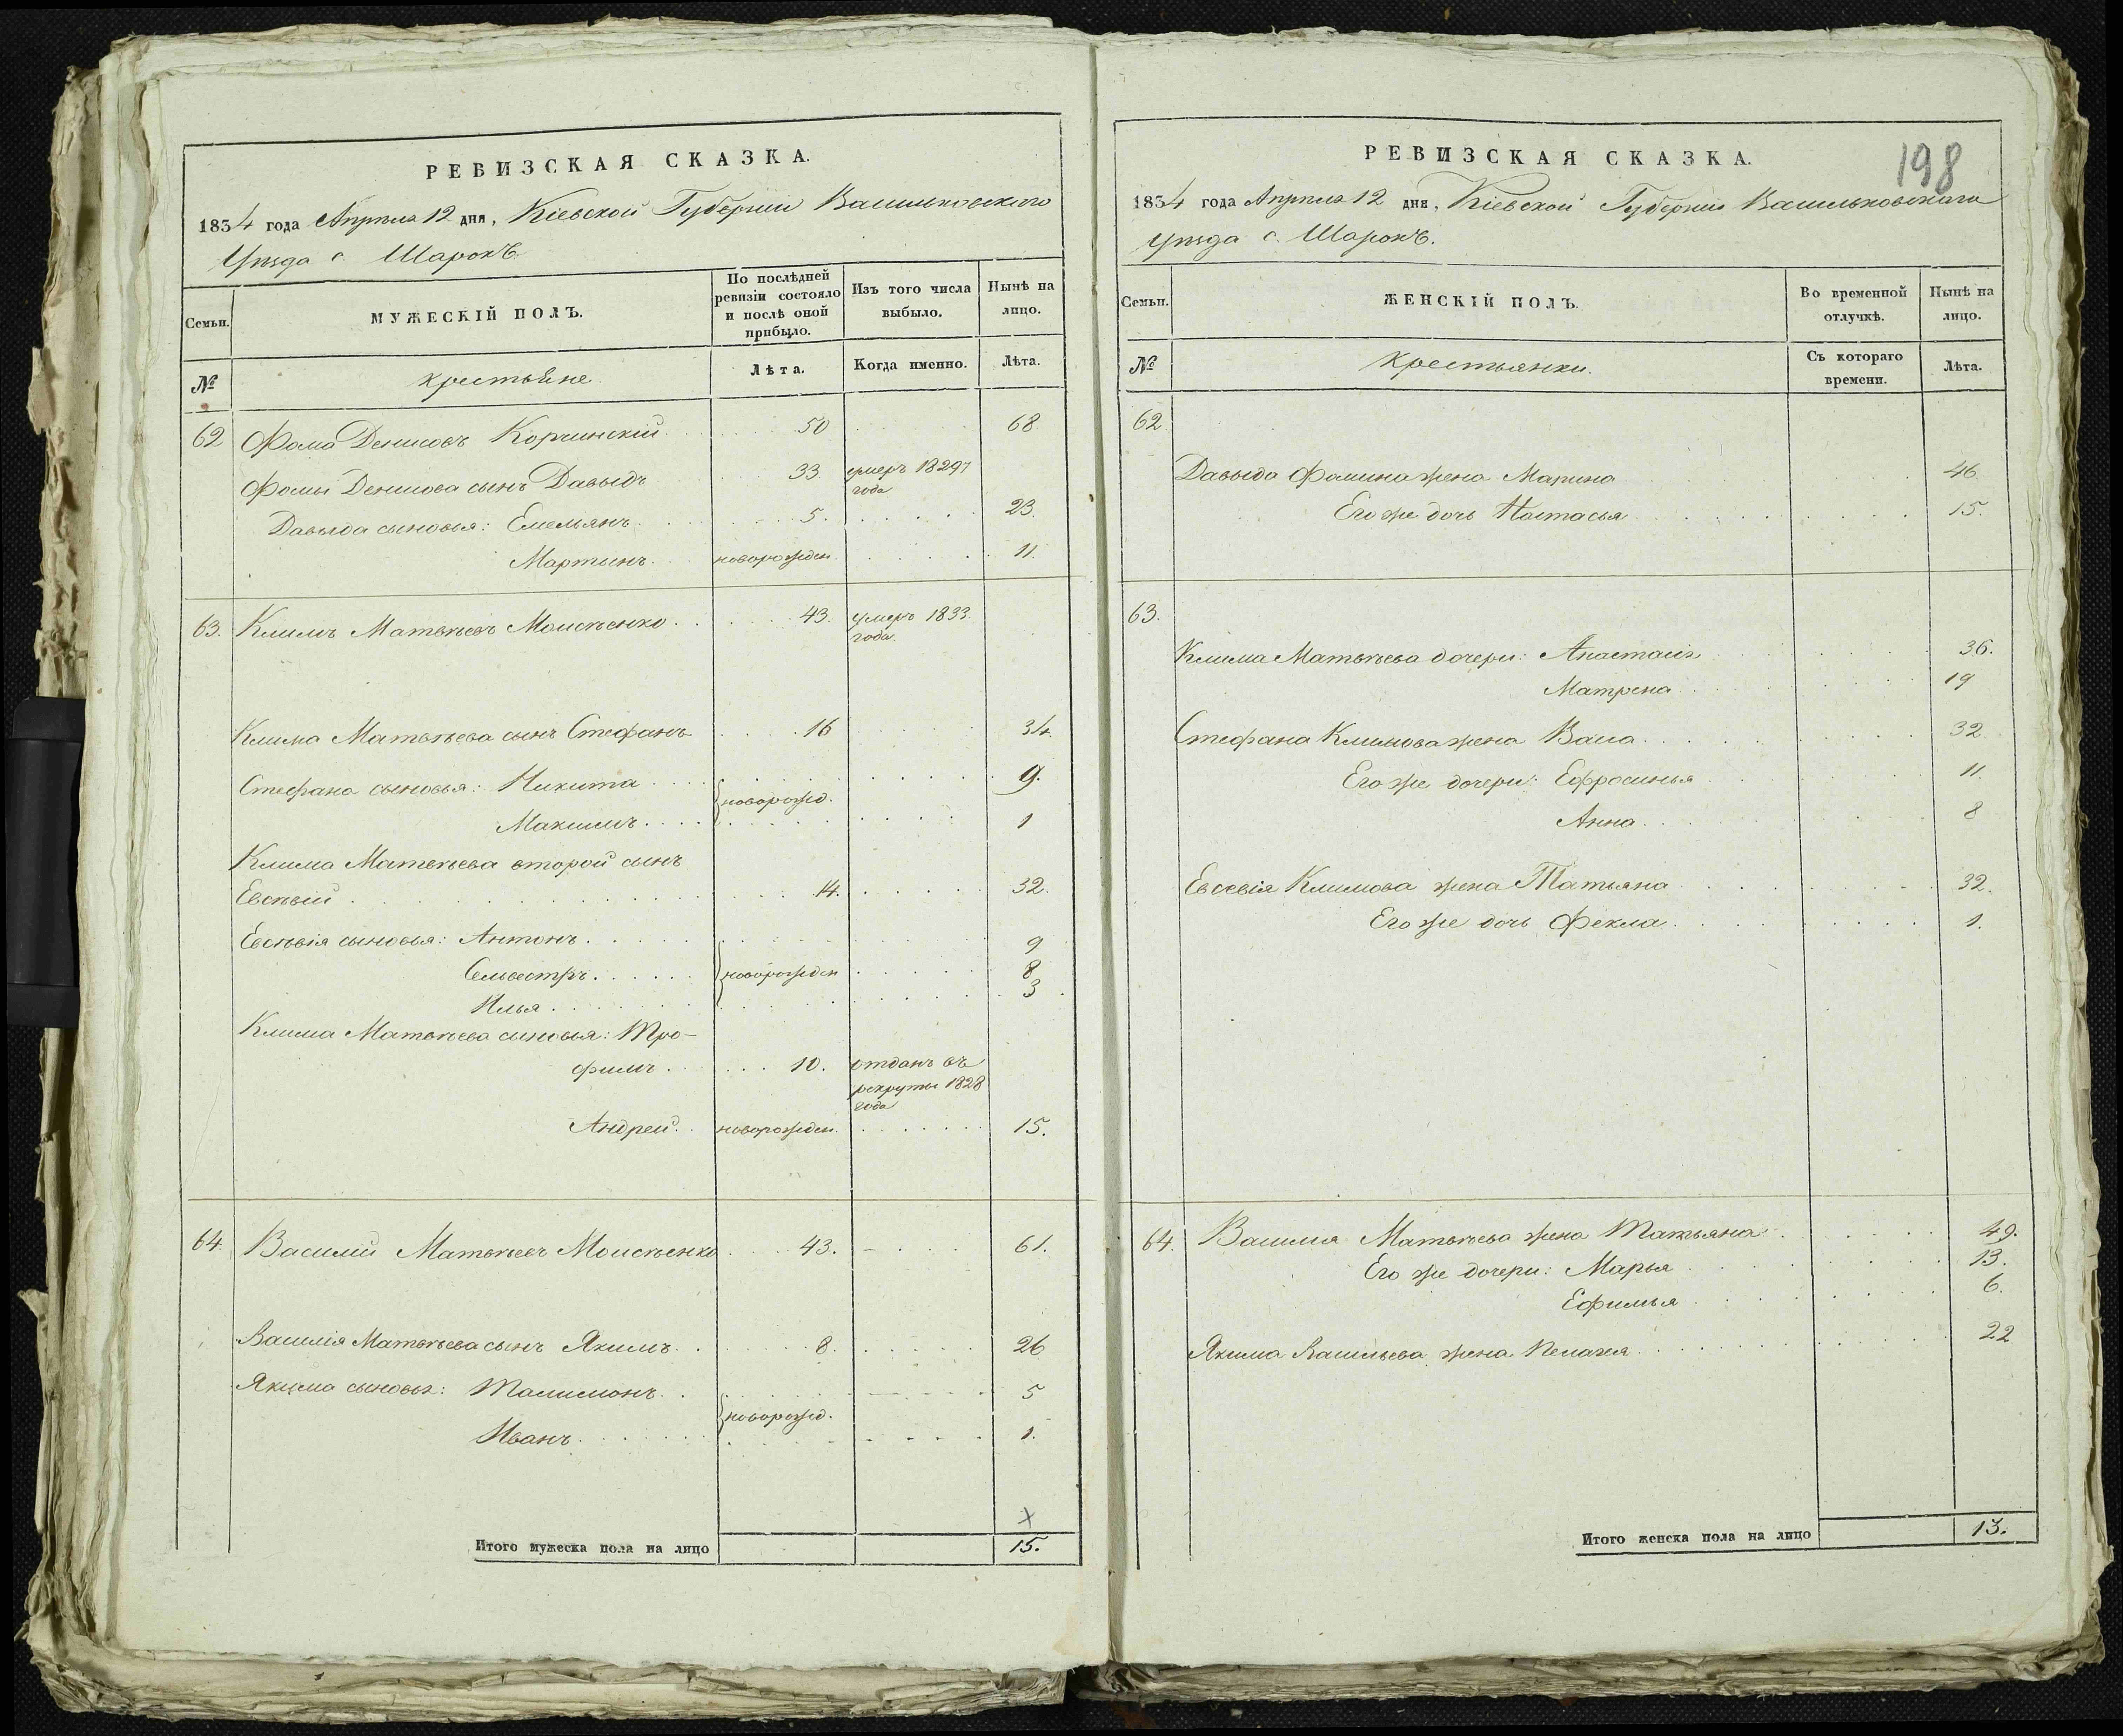 РЕВИЗСКАЯ СКАЗКА.
1834 года Апрѣля 12 дня, Кіевской Губерніи Васильковскаго
Уѣзда с. Шарокъ
Семьи.
МУЖЕСКІЙ ПОЛЪ.
По послѣдней
ревизіи состояло
и послѣ оной
прибыло.
Изъ того числа
выбыло.
Нынѣ на
лицо.
№
крестьяне
Лѣта.
Когда именно.
Лѣта.
62 Фома Денисовъ Корчинскій 50 68
Фомы Денисова сынъ Давыдъ 33 умеръ 1829
года
Давыда сыновья: Емельянъ 5. 23.
Мартынъ новорожден 11.
63. Климъ Матвѣевъ Моисѣенко 43. умеръ 1833
года.
Клима Матвѣева сынъ Стефанъ 16 34.
Стефана сыновья: Никита 9.
новорожд.
Максимъ 1
Клима Матвѣева второй сынъ
Евсѣвій 14. 32.
Евсѣвія сыновья: Антонъ 9
Сельвестръ новорожден 8
Илья 3
Клима Матвѣева сыновья: Тро-
фимъ 10. отданъ въ
рекруты 1828
года
Андрей новорожден 15.
64. Василій Матвѣевъ Моисѣенко 43. 61.
Василія Матвѣева сынъ Якимъ 8. 26
Якима сыновья: Талимонъ 5
новорожд.
Иванъ 1.
Итого мужеска пола на лицо 15.
198
РЕВИЗСКАЯ СКАЗКА.
1834 года Апрѣля 12 дня, Кіевской Губерніи Васильковскаго
Уѣзда с. Шарокъ.
Семьи.
ЖЕНСКІЙ ПОЛЪ.
Во временной
отлучкѣ.
Нынѣ на
лицо.
№
крестьянки.
Съ котораго
времени.
Лѣта.
62
Давыда Фомина жена Марина 46
Его же дочь Настасья 15.
63.
Клима Матвѣева дочери: Анастасія 36.
Матрена 19
Стефана Климова жена Васа 32
Его же дочери: Ефросинья 11.
Анна 8
Евсевія Климова жена Татьяна 32.
Его же дочь Фекла 1.
64. Василія Матвѣева жена Татьяна 49.
Его же дочери: Марья 13.
Ефимья 6.
Якима Васильева жена Пелагея 22
Итого женска пола на лицо 13.